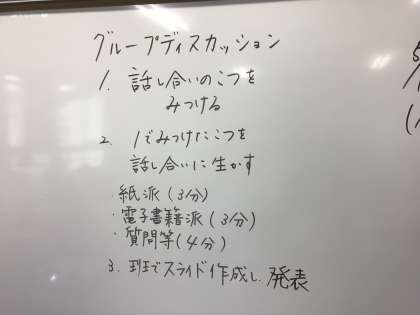 グループディスカッション
1. 話し合いのこつを
みつける
2. 1でみつけたこつを
話し合いに生かす
紙派(3分)
・電子書籍派(3分)
・質問等(4分)
3. 班でスライド作成し、発表